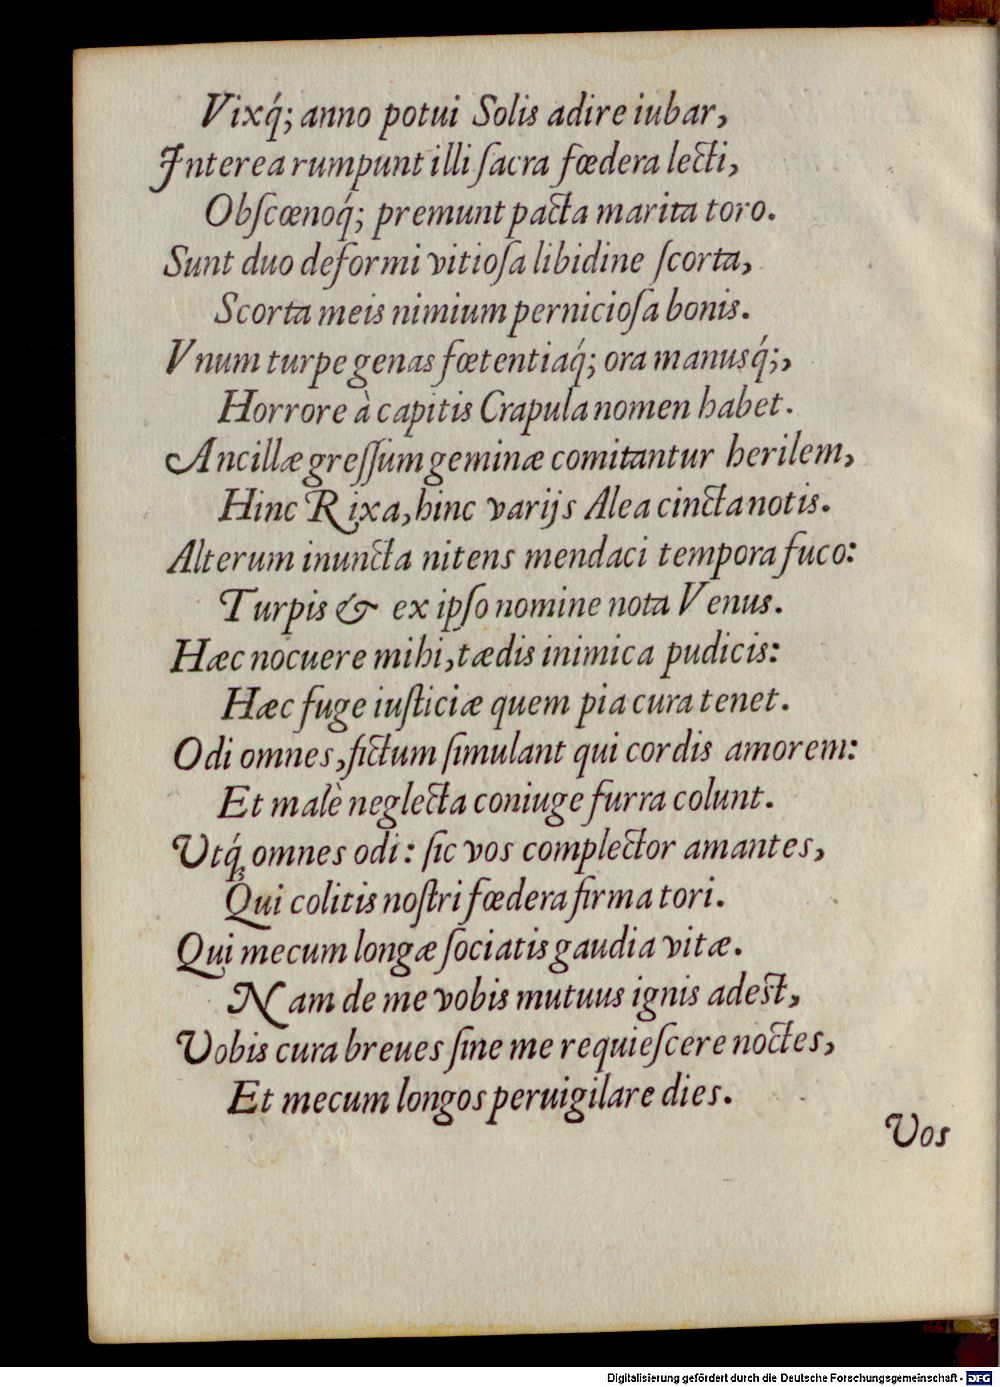 Vixq́; anno potui Solis adire iubar,
Interea rumpunt illi ſacra fœdera lecti,
Obſcœnoq́; premunt pacta marita toro.
Sunt duo deformi vitioſa libidine ſcorta,
Scorta meis nimium pernicioſa bonis.
Vnum turpe genas fœtentiaq́; ora manusq́;,
Horrore à capitis Crapula nomen habet.
Ancillæ greſſum geminæ comitantur herilem,
Hinc Rixa, hinc varijs Alea cincta notis.
Alterum inuncta nitens mendaci tempora fuco:
Turpis & ex ipſo nomine nota Venus.
Hæc nocuere mihi, tædis inimica pudicis:
Hæc fuge iuſticiæ quem pia cura tenet.
Odi omnes, fictum ſimulant qui cordis amorem:
Et malè neglecta coniuge furra colunt.
Utq́ꝫ omnes odi: ſic vos complector amantes,
Qui colitis noſtri fœdera firma tori.
Qui mecum longæ ſociatis gaudia vitæ.
Nam de me vobis mutuus ignis adest,
Vobis cura breues ſine me requieſcere noctes,
Et mecum longos peruigilare dies.
Vos
Digitalisierung gefördert durch die Deutsche Forschungsgemeinschaft - DFG